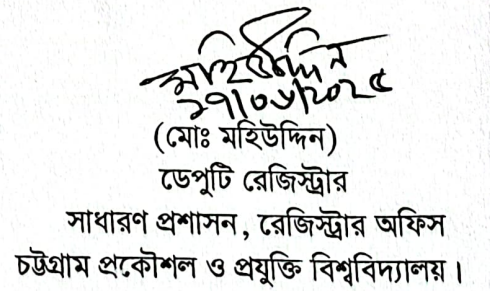 মহিউদ্দিন
১৭/০৮/২০২৫
(মোঃ মহিউদ্দিন)
ডেপুটি রেজিস্ট্রার
সাধারণ প্রশাসন, রেজিস্ট্রার অফিস
চট্টগ্রাম প্রকৌশল ও প্রযুক্তি বিশ্ববিদ্যালয়।